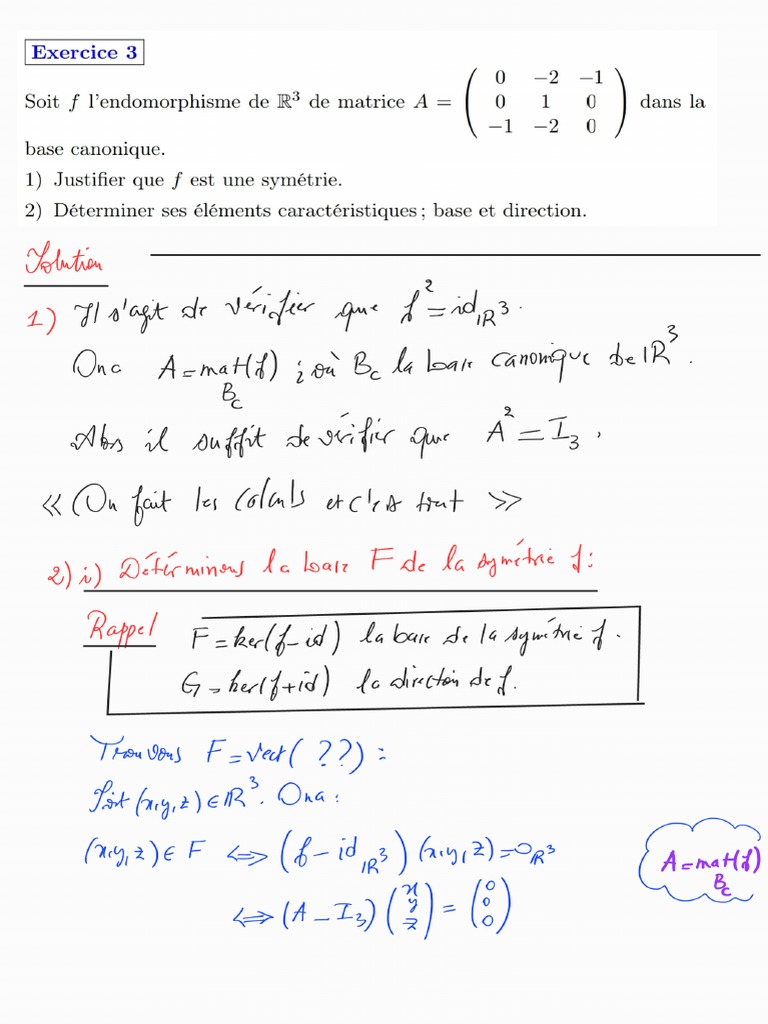 Exercice 3
Soit f l'endomorphisme de ℝ³ de matrice A = ( 0 −2 −1 ; 0 1 0 ; −1 −2 0 ) dans la
base canonique.
1) Justifier que f est une symétrie.
2) Déterminer ses éléments caractéristiques ; base et direction.
Solution
1) Il s'agit de vérifier que f² = id_ℝ³.
On a A = mat(f) ; où Bc la base canonique de ℝ³.
Bc
Alors il suffit de vérifier que A² = I₃.
« On fait les calculs et c'est tout »
2) i) Déterminons la base F de la symétrie f :
Rappel F = ker(f − id) la base de la symétrie f.
G = ker(f + id) la direction de f.
Trouvons F = vect( ?? ) :
Soit (x,y,z) ∈ ℝ³. On a :
(x,y,z) ∈ F ⟺ (f − id_ℝ³)(x,y,z) = 0_ℝ³
A = mat(f)
Bc
⟺ (A − I₃) ( x ; y ; z ) = ( 0 ; 0 ; 0 )